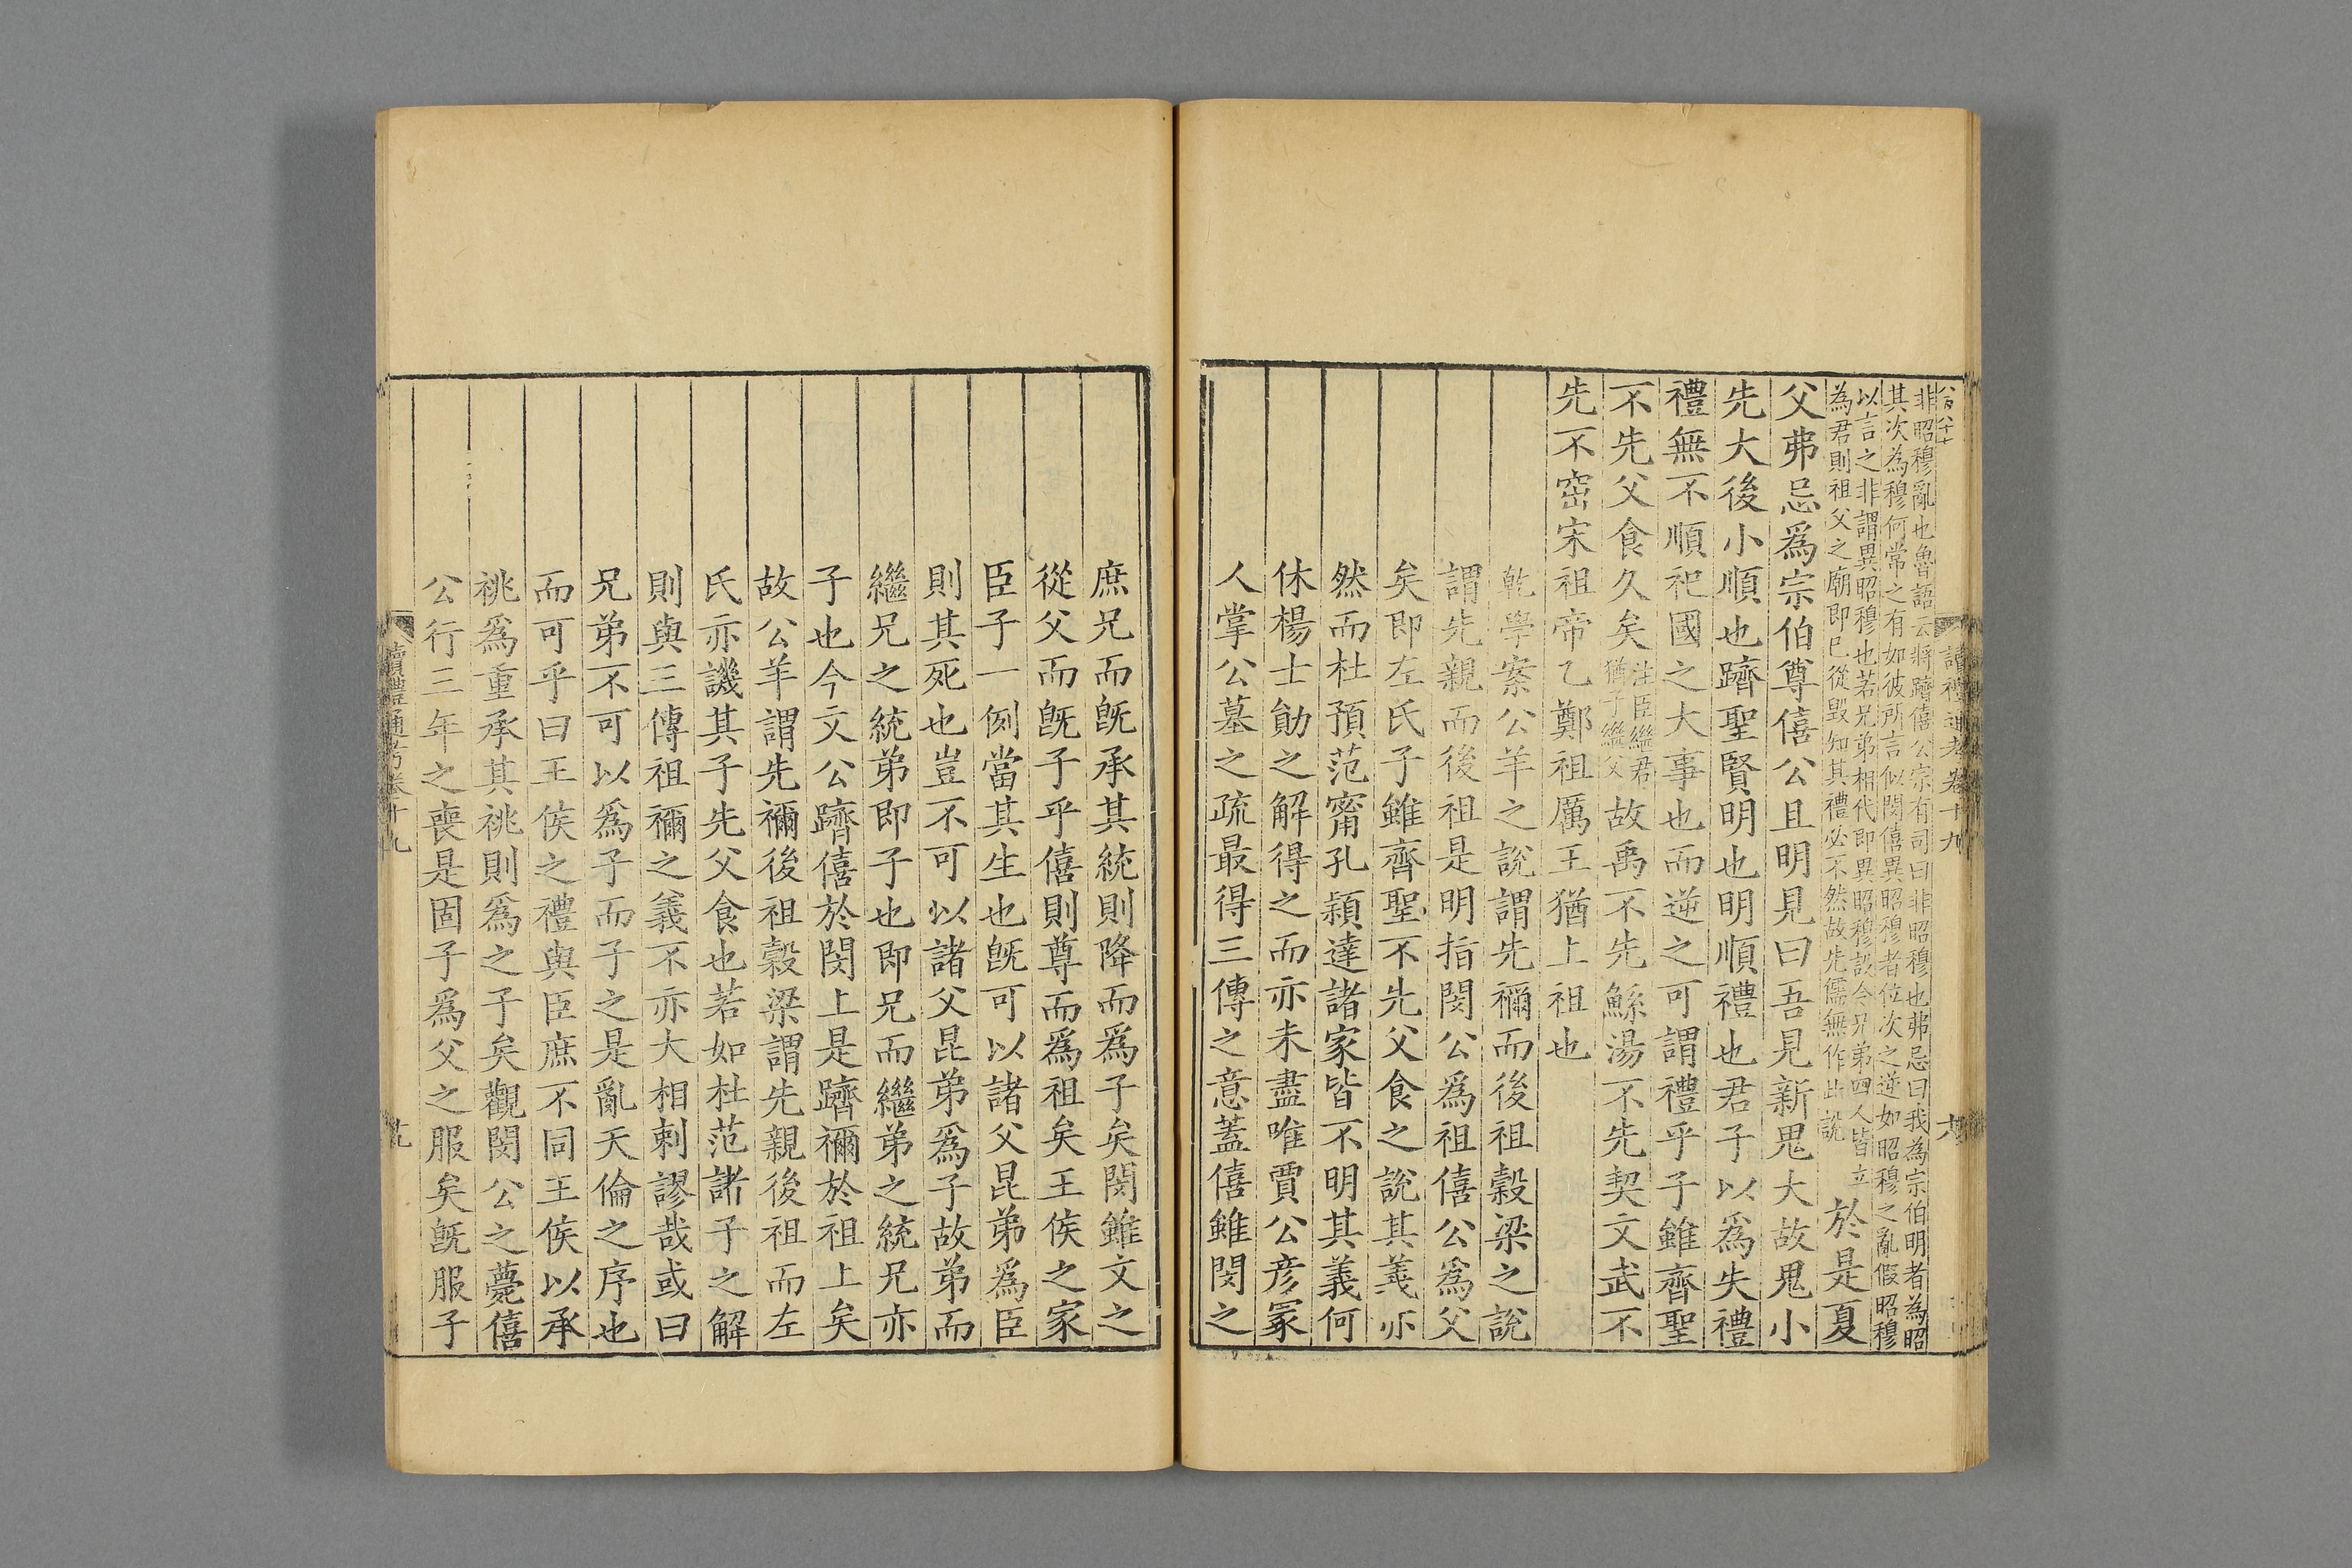 讀禮通考卷十九
非昭穆亂也魯語云將躋僖公宗有司曰非昭穆也弗忌曰我為宗伯明者為昭
其次為穆何常之有如彼所言似閔僖異昭穆者位次之逆如昭穆之亂假昭穆
以言之非謂異昭穆也若兄弟相代即異昭穆設令兄弟四人皆立
為君則祖父之廟即已從毀知其禮必不然故先儒無作此說
於是夏
父弗忌爲宗伯尊僖公且明見曰吾見新鬼大故鬼小
先大後小順也躋聖賢明也明順禮也君子以爲失禮
禮無不順祀國之大事也而逆之可謂禮乎子雖齊聖
不先父食久矣
注臣繼君
猶子繼父
故禹不先鯀湯不先契文武不
先不窋宋祖帝乙鄭祖厲王猶上祖也
乾學案公羊之說謂先禰而後祖穀梁之說
謂先親而後祖是明指閔公爲祖僖公爲父
矣即左氏子雖齊聖不先父食之說其義亦
然而杜預范甯孔穎達諸家皆不明其義何
休楊士勛之解得之而亦未盡唯賈公彥冢
人掌公墓之疏最得三傳之意蓋僖雖閔之
庶兄而旣承其統則降而爲子矣閔雖文之
從父而旣子乎僖則尊而爲祖矣王侯之家
臣子一例當其生也旣可以諸父昆弟爲臣
則其死也豈不可以諸父昆弟爲子故弟而
繼兄之統弟即子也即兄而繼弟之統兄亦
子也今文公躋僖於閔上是躋禰於祖上矣
故公羊謂先禰後祖穀梁謂先親後祖而左
氏亦譏其子先父食也若如杜范諸子之解
則與三傳祖禰之義不亦大相剌謬哉或曰
兄弟不可以爲子而子之是亂天倫之序也
而可乎曰王侯之禮與臣庶不同王侯以承
祧爲重承其祧則爲之子矣觀閔公之薨僖
公行三年之喪是固子爲父之服矣旣服子
讀禮通考卷十九